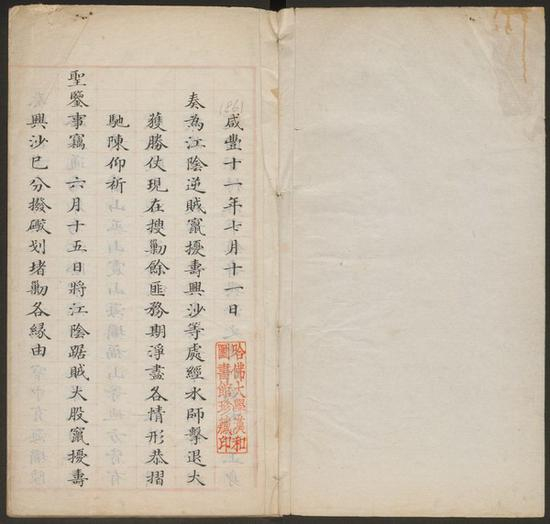 咸豐十一年七月十一日
(1861)
奏為江陰逆賊竄擾壽興沙等處經水師擊退大
獲勝仗現在搜勦餘匪務期淨盡各情形恭摺
馳陳仰祈
聖鑒事竊六月十五日將江陰踞賊大股竄擾壽
興沙已分撥礮划堵勦各緣由
哈佛大學漢和
圖書館珍藏印